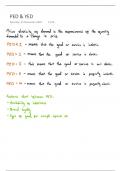 PED & YED
Price elasticity of demand is the responsiveness of the quantity
demanded to a change in price.
- means that the good or service is inelastic.
- means that the good or service is elastic.
- means that the good or service is unit elastic.
- means that the good or service is perfectly inelastic.
- means that the good or service is perfectly elastic.
Factors that influence PED:
- Availability of
- Brand loyalty
- Type of good